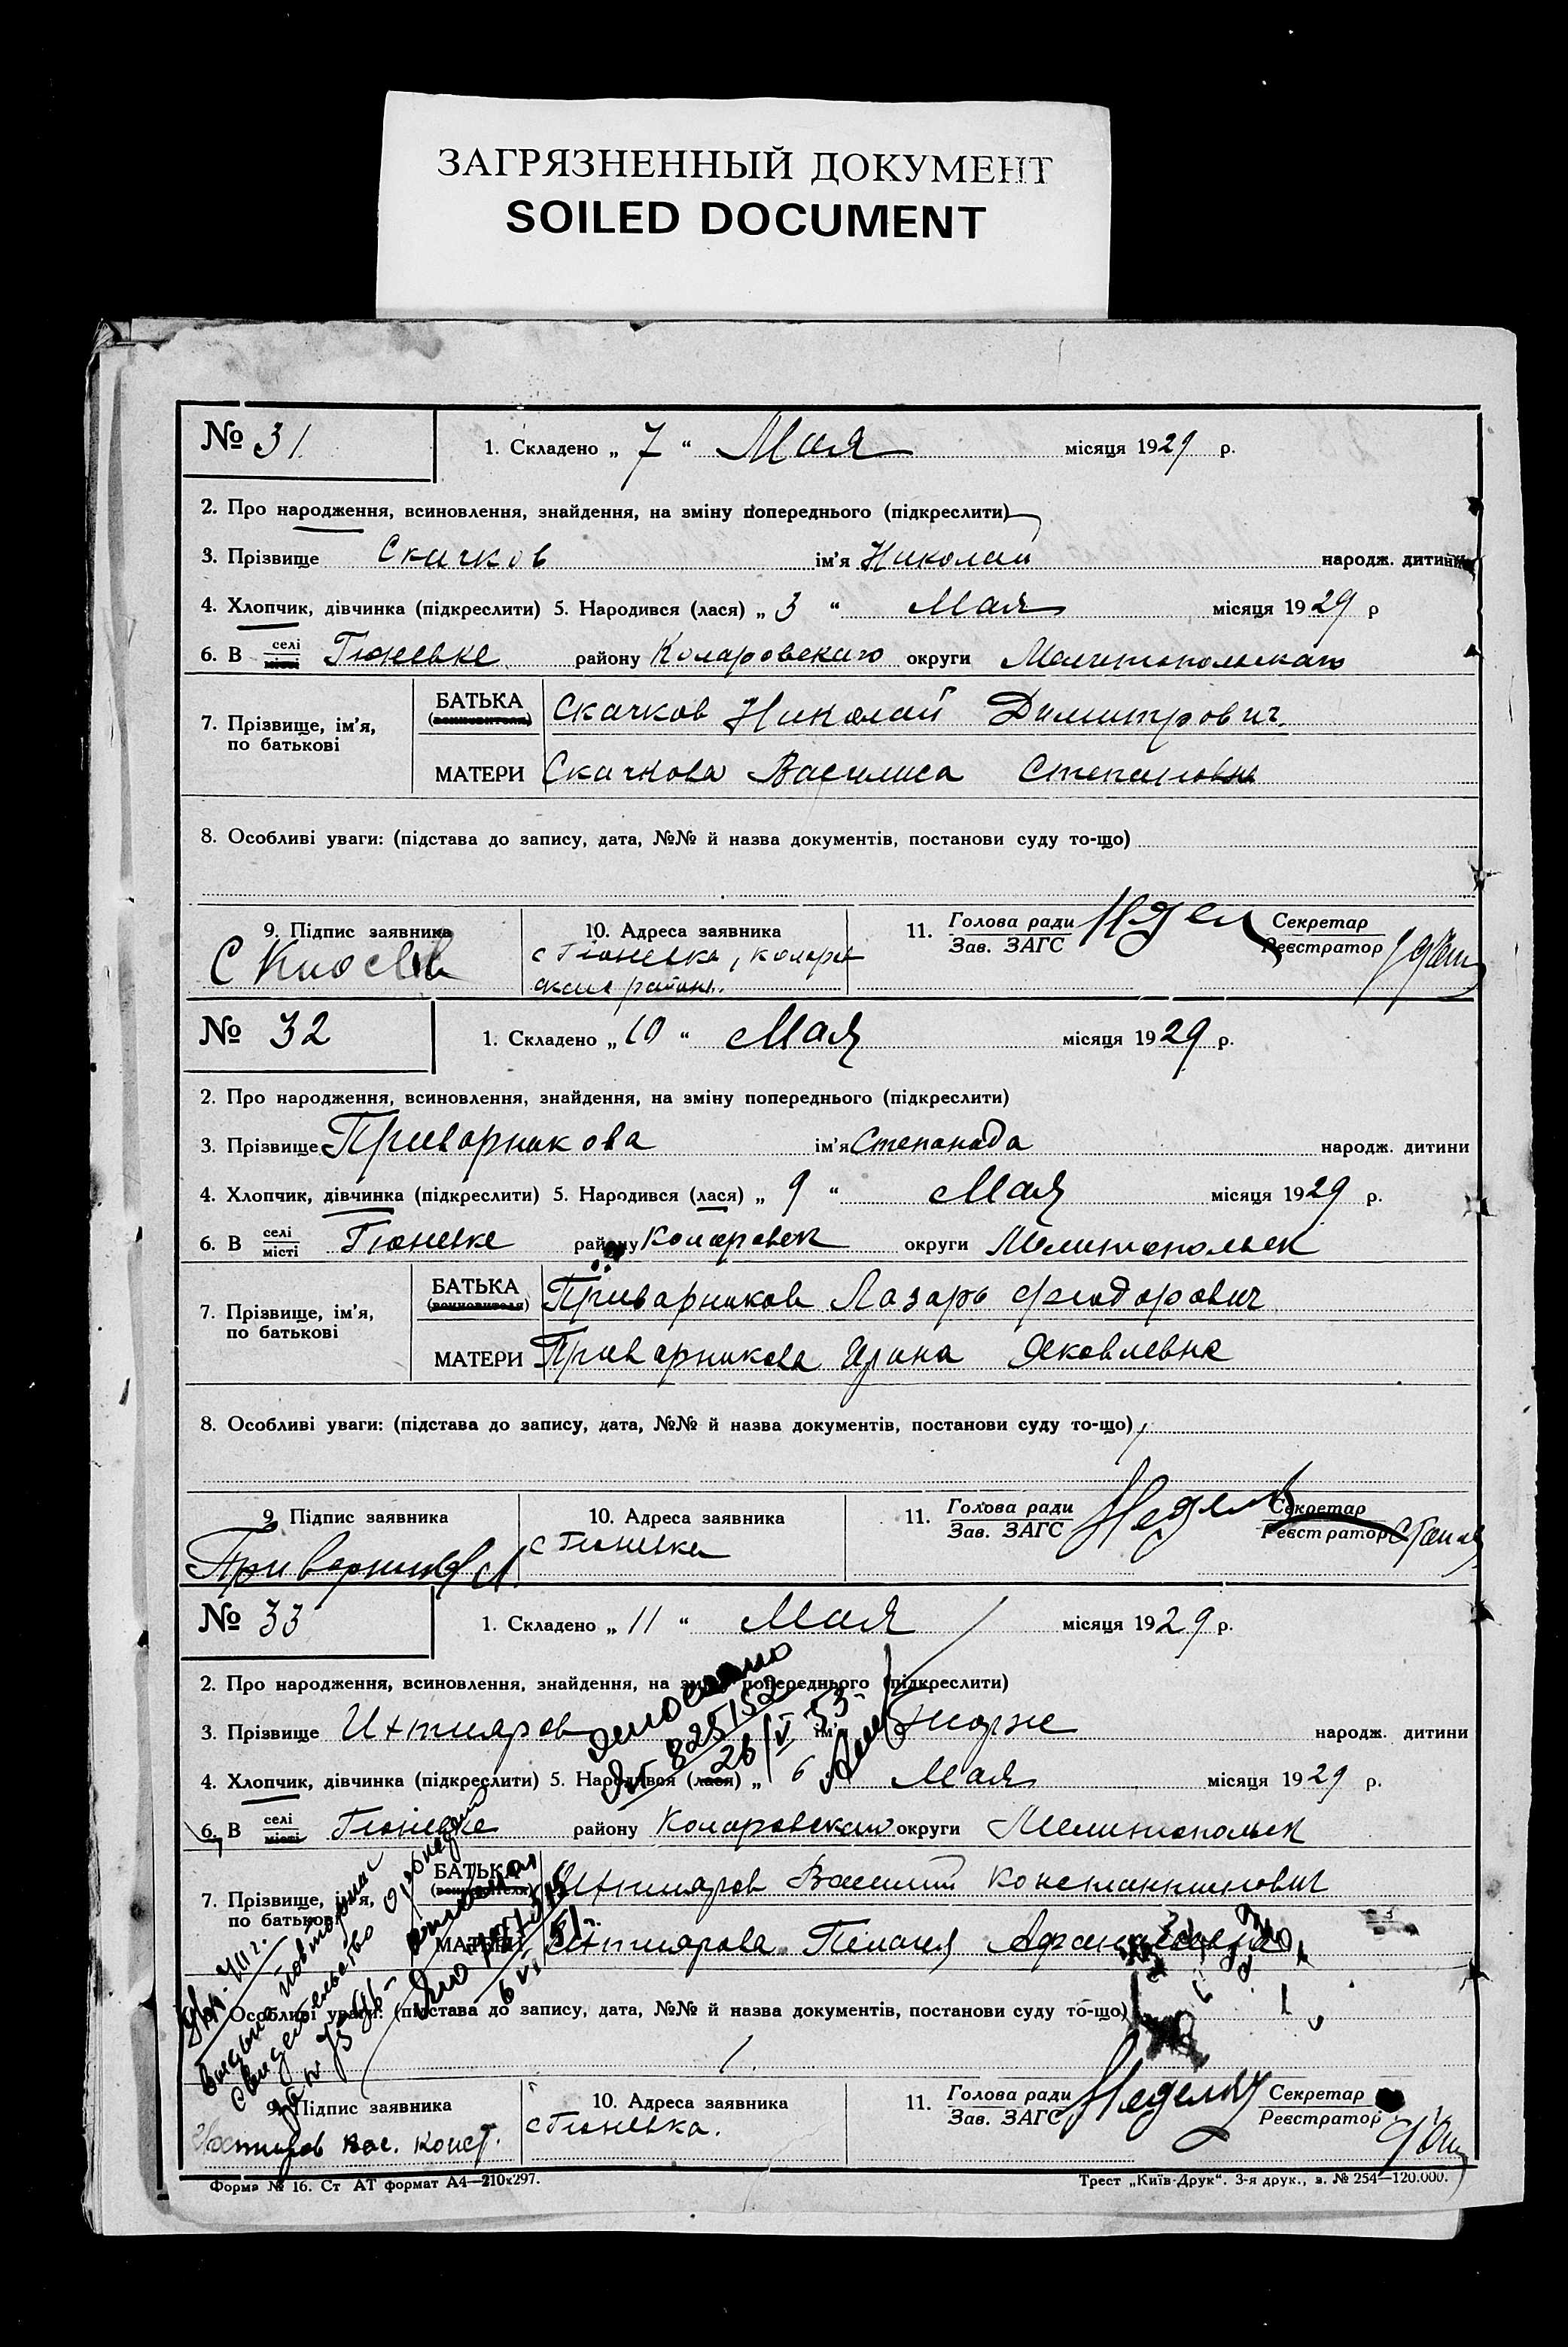 ЗАГРЯЗНЕННЫЙ ДОКУМЕНТ
SOILED DOCUMENT
№ 31
1. Складено „ 7 “ Мая місяця 1929 р.
2. Про народження, всиновлення, знайдення, на зміну попереднього (підкреслити)
3. Прізвище Скачков ім'я Николай народж. дитини
4. Хлопчик, дівчинка (підкреслити) 5. Народився (лася) „ 3 “ Мая місяця 1929 р
6. В селі місті Гюневке району Коларовского округи Мелитопольскаго
7. Прізвище, ім'я, по батькові
БАТЬКА Скачков Николай Димитрович.
МАТЕРИ Скачкова Василиса Степановна
8. Особливі уваги: (підстава до запису, дата, №№ й назва документів, постанови суду то-що)
9. Підпис заявника
10. Адреса заявника
с Гюневка, коларо
вского района.
11. Голова ради
Зав. ЗАГС
Секретар
Реєстратор
№ 32
1. Складено „ 10 “ Мая місяця 1929 р.
2. Про народження, всиновлення, знайдення, на зміну попереднього (підкреслити)
3. Прізвище Приварникова ім'я Степанада народж. дитини
4. Хлопчик, дівчинка (підкреслити) 5. Народився (лася) „ 9 “ Мая місяця 1929 р.
6. В селі місті Гюневке району Коларовск округи Мелитопольск
7. Прізвище, ім'я, по батькові
БАТЬКА (всиновителя) Приварников Лазарь Феодорович
МАТЕРИ Приварникова Ирина Яковлевна
8. Особливі уваги: (підстава до запису, дата, №№ й назва документів, постанови суду то-що)
9. Підпис заявника
Приварников Л.
10. Адреса заявника
с Гюневка
11. Голова ради
Зав. ЗАГС
Секретар
Реєстратор
№ 33
1. Складено „ 11 “ Мая місяця 1929 р.
2. Про народження, всиновлення, знайдення, на зміну попереднього (підкреслити)
3. Прізвище Ихтияров ім'я народж. дитини
№ 825152
26/V 53
4. Хлопчик, дівчинка (підкреслити) 5. Народився (лася) „ 6 Мая місяця 1929 р.
6. В селі місті Гюневке району Коларовского округи Мелитопольск
7. Прізвище, ім'я, по батькові
БАТЬКА Ихтияров Василий Константинович
МАТЕРИ Ихтиярова Пелагея
8. Особливі уваги: (підстава до запису, дата, №№ й назва документів, постанови суду то-що)
9. Підпис заявника
Ихтияров Вас. Конст.
10. Адреса заявника
с Гюневка.
11. Голова ради
Зав. ЗАГС
Секретар
Реєстратор
Форма № 16. Ст АТ формат А4—210х297.
Трест „Київ-Друк“. 3-я друк., з. № 254—120.000.